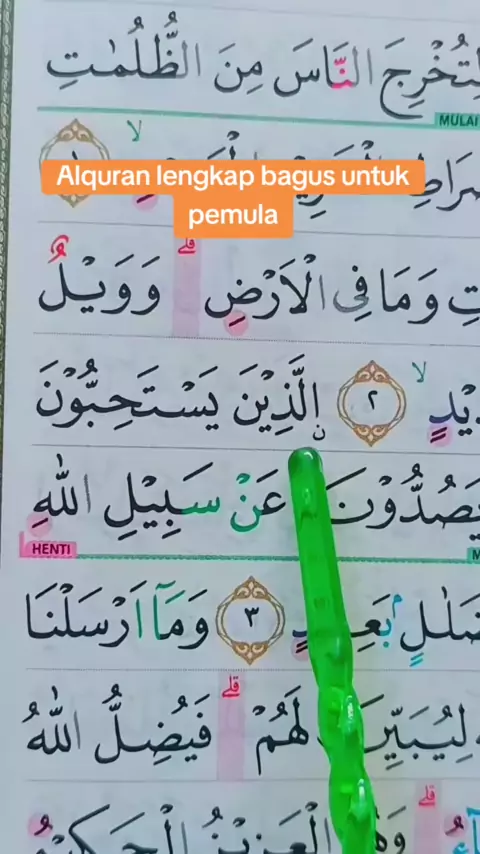 لِتُخْرِجَ النَّاسَ مِنَ الظُّلُمٰتِ
MULAI
Alquran lengkap bagus untuk
pemula
وَمَا فِى الْاَرْضِۗ وَوَيْلٌ
قلے
لا
٢ الَّذِيْنَ يَسْتَحِبُّوْنَ
ن
يَصُدُّوْنَ عَنْ سَبِيْلِ اللّٰهِ
HENTI
ضَلٰلٍۢ بَعِيْدٍ ٣ وَمَآ اَرْسَلْنَا
لِيُبَيِّنَ لَهُمْ فَيُضِلُّ اللّٰهُ
قلے
قلے
وَهُوَ الْعَزِيْزُ الْحَكِيْمُ